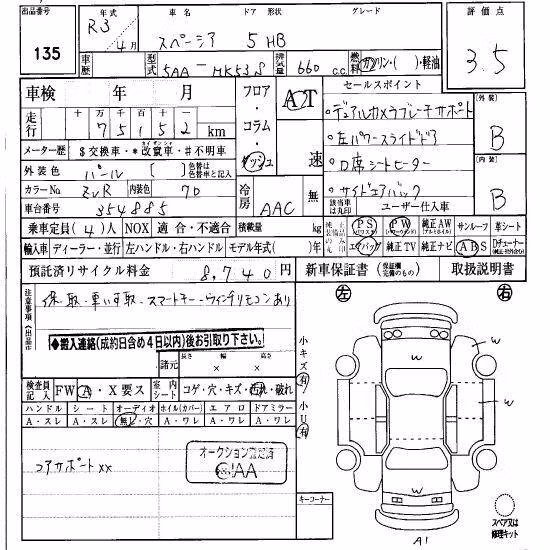 出品番号 年式 車名 ドア 形状 グレード 評価点
135 R3年 4月 スペーシア 5HB 3.5
車歴 型式 5AA-MK53S 排気量 660 c.c. 燃料 ガソリン・( )・軽油
車検 年 月 フロア・コラム・ダッシュ AT 速 セールスポイント 外装 B
走行 十万千百十一 75152 km ・デュアルカメラブレーキサポート
メーター歴 $交換車・*改竄車・#不明車 ・左パワースライドドア
外装色 パール ( ) 色替は色替車と記入 ・D席シートヒーター 内装 B
カラーNo ZVR 内装色 70 冷房 AAC 無 ・サイドエアバック
車台番号 354885 該当車は丸印 ユーザー仕入車
乗車定員(4)人 NOX 適合・不適合 積載量 kg PS PW 純正AW サンルーフ 革シート
輸入車 ディーラー・並行 左ハンドル・右ハンドル モデル年式( )年 エアバッグ 純正TV 純正ナビ ABS
預託済リサイクル料金 8,740円 新車保証書 (保証欄完備のもの) 取扱説明書
注意事項(出品店) 保取・車い可取、スマートキー・ウィンチリモコンあり 左 右
◆搬入連絡(成約日含め4日以内)後お引取り下さい。
諸元 長さ × 幅 × 高さ 小キズ有
検査員記入 FW A・X要ス 室内シート コゲ・穴・キズ・汚れ・破れ 小U有
ハンドル シート オーディオ ホイル(カバー) エアロ ドアミラー
A・スレ A・スレ 無し・穴 A・ワレ A・ワレ A・ワレ
コアサポートxx オークション規定済
AA
キーコーナー
W
W
W
W
A1
スペア又は修理キット